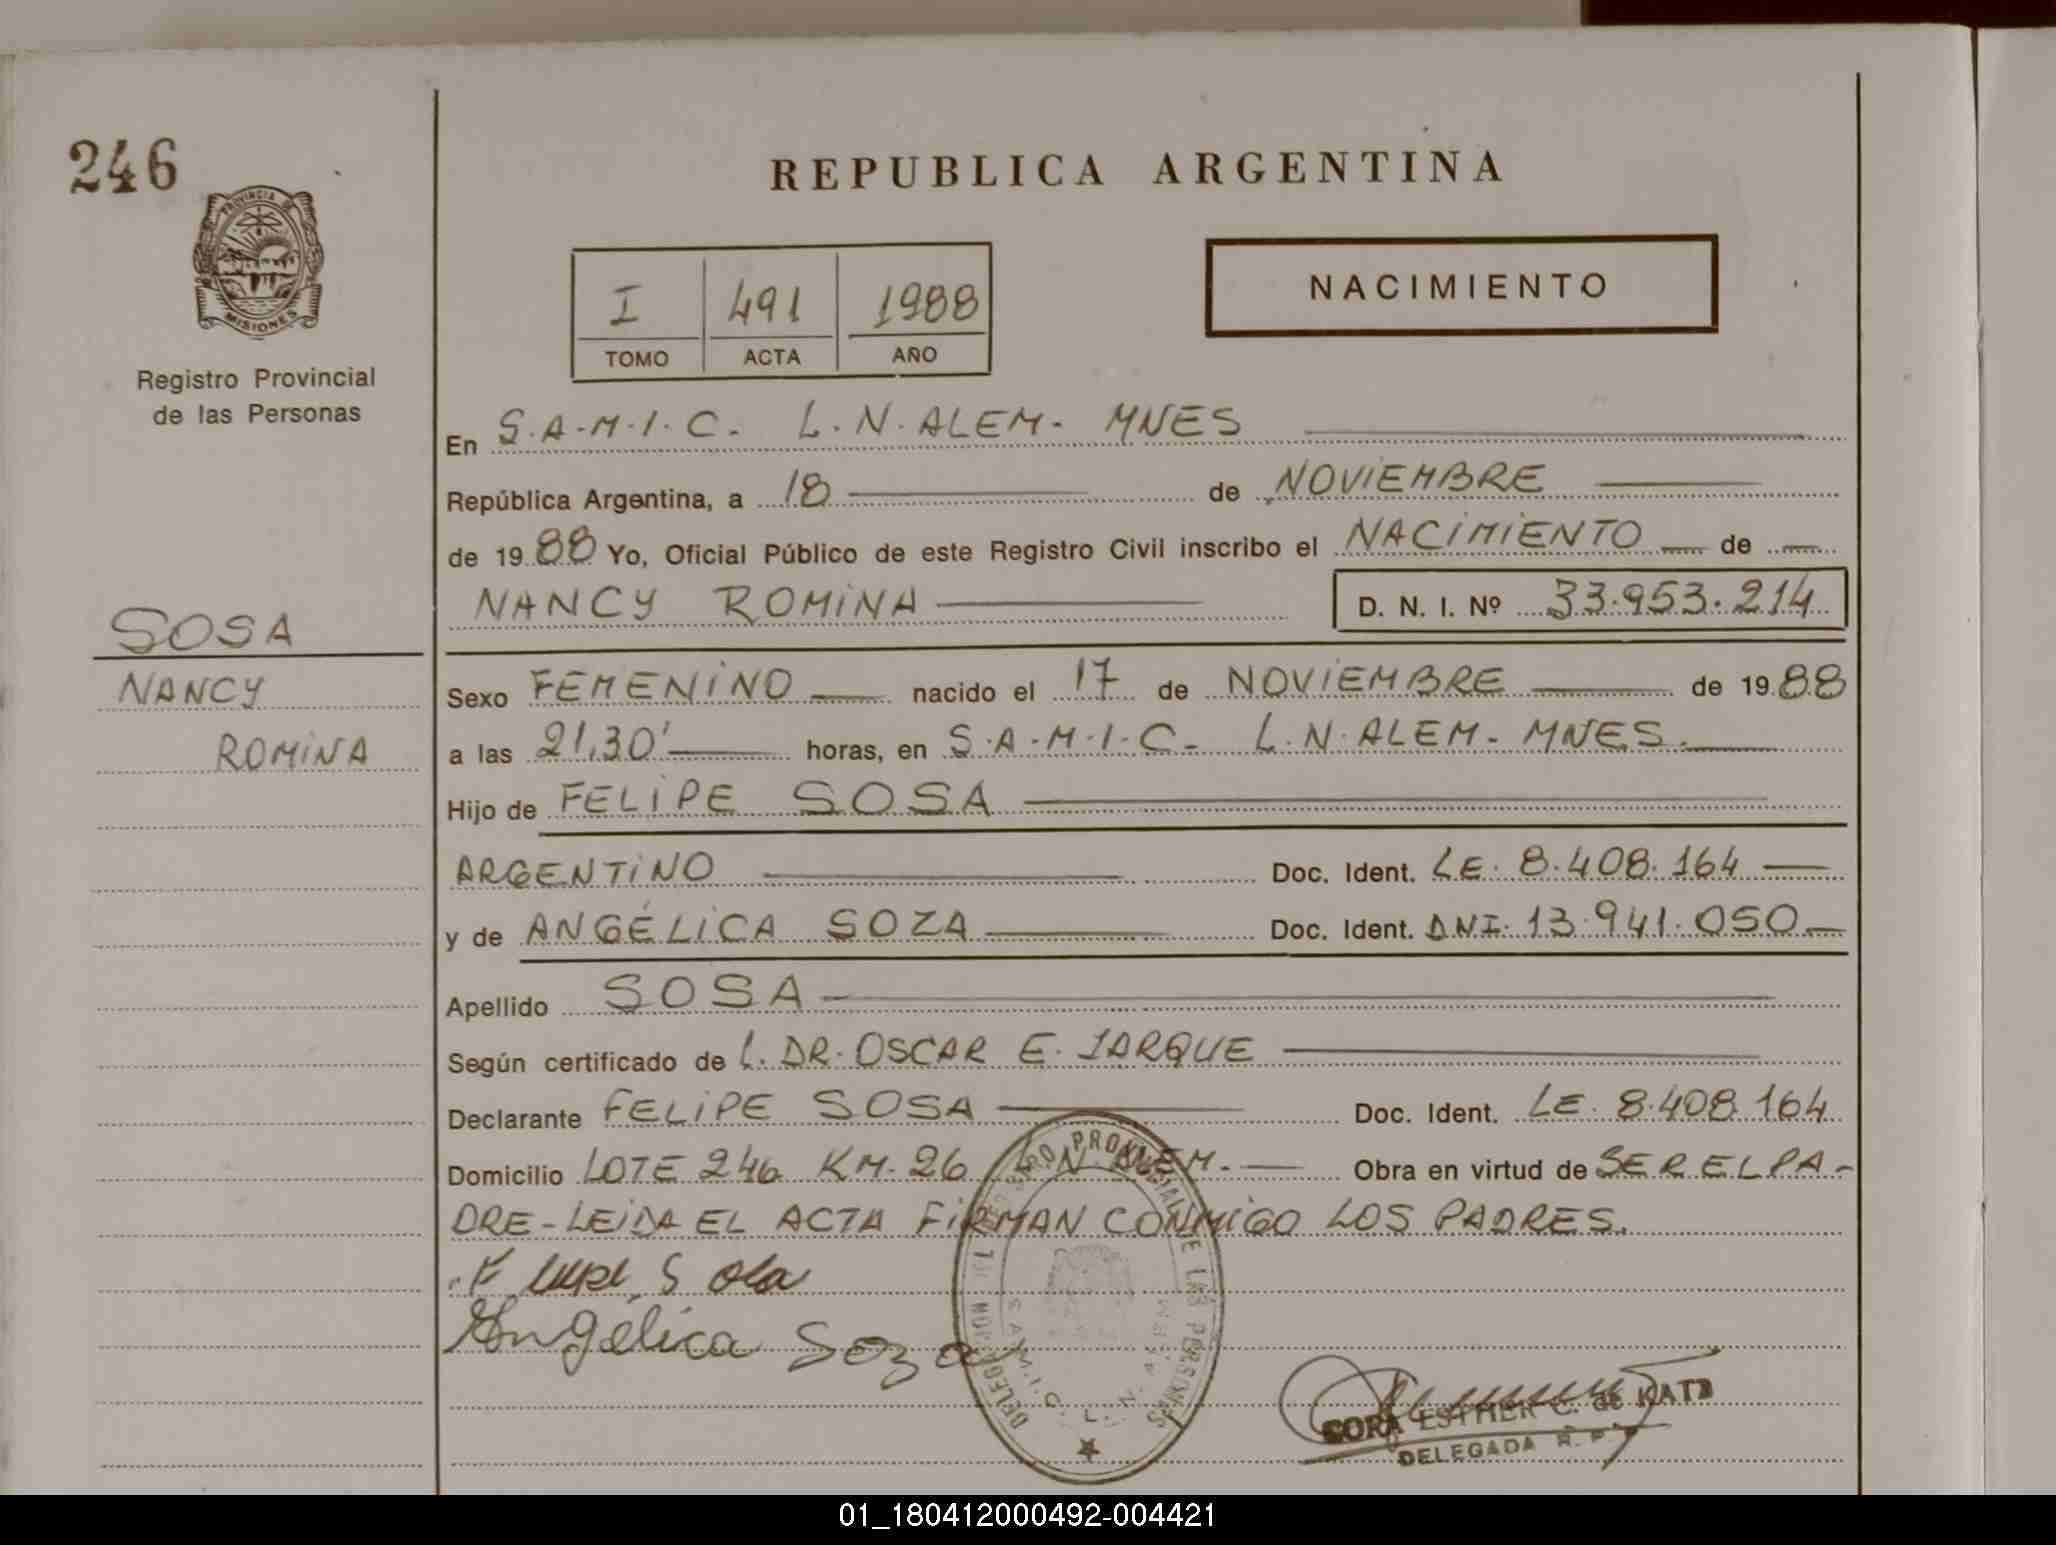 246
PROVINCIA DE
MISIONES
Registro Provincial
de las Personas
SOSA
NANCY
ROMINA
REPUBLICA ARGENTINA
I 491 1988
TOMO ACTA AÑO
NACIMIENTO
En S.A.M.I.C. L.N.ALEM- MNES
República Argentina, a 18 de NOVIEMBRE
de 1988 Yo, Oficial Público de este Registro Civil inscribo el NACIMIENTO de
NANCY ROMINA D. N. I. Nº 33.953.214
Sexo FEMENINO nacido el 17 de NOVIEMBRE de 1988
a las 21,30' horas, en S.A.M.I.C. L.N.ALEM- MNES.
Hijo de FELIPE SOSA
ARGENTINO Doc. Ident. LE. 8.408.164
y de ANGÉLICA SOZA Doc. Ident. DNI. 13.941.050
Apellido SOSA
Según certificado de L. DR. OSCAR E. JARQUE
Declarante FELIPE SOSA Doc. Ident. LE. 8.408.164
Domicilio LOTE 246 KM.26 L.N. ALEM. Obra en virtud de SER EL PA-
DRE-LEIDA EL ACTA FIRMAN CONMIGO LOS PADRES.
Angélica Soza
REGISTRO PROVINCIAL DE LAS PERSONAS
S.A.M.I.C. L. N. ALEM
ESTHER C. de KATZ
DELEGADA R. P.
01_180412000492-004421